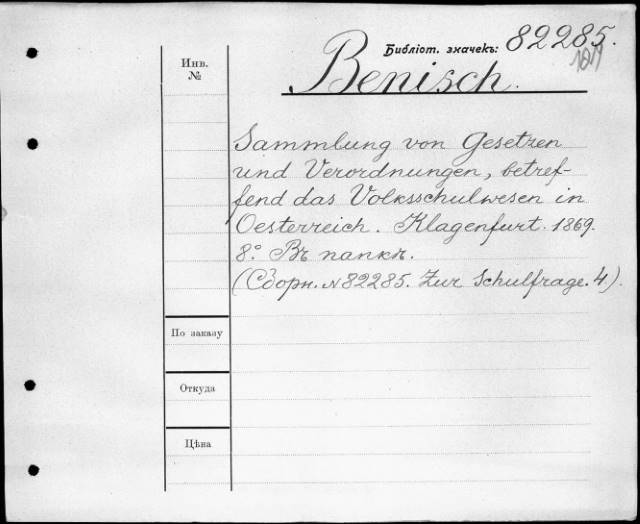 Библіот. значекъ: 82285.
Инв.
№
Benisch.
Sammlung von Gesetzen
und Verordnungen, betref-
fend das Volksschulwesen in
Oesterreich. Klagenfurt. 1869.
8.° Въ папкѣ.
(Сборн. №82285. Zur Schulfrage. 4.).
По заказу
Откуда
Цѣна